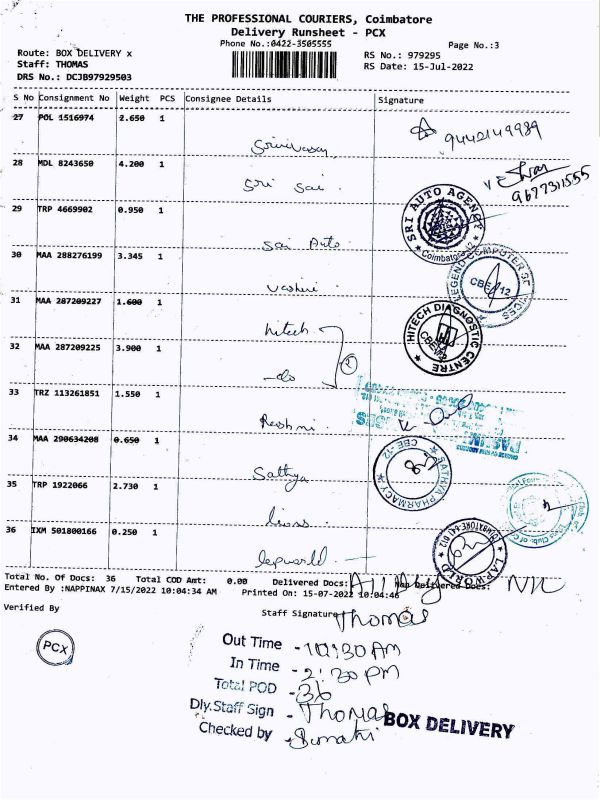 THE PROFESSIONAL COURIERS, Coimbatore
Delivery Runsheet - PCX
Phone No.:0422-3505555
Page No.:3
Route: BOX DELIVERY x
Staff: THOMAS
DRS No.: DCJB97929503
RS No.: 979295
RS Date: 15-Jul-2022
S No Consignment No Weight PCS Consignee Details Signature
27 POL 1516974 2.650 1
Srinivasan
9442149989
28 MDL 8243650 4.200 1
Sri Sai
9677311555
29 TRP 4669902 0.950 1
Sai Auto
SRI AUTO AGENCY
Coimbatore-12
30 MAA 288276199 3.345 1
LEGEND COMPUTER SERVICES
CBE-12
31 MAA 287209227 1.600 1
hitech
HITECH DIAGNOSTIC CENTRE
CBE-12
32 MAA 287209225 3.900 1
-do
2
33 TRZ 113261851 1.550 1
Reshmi
34 MAA 290634208 0.650 1
Sathya
SATHYA PHARMACY
CBE-12
35 TRP 1922066 2.730 1
lions
36 IXM 501800166 0.250 1
lapworld
LAPWORLD
COIMBATORE-641 012
Total No. Of Docs: 36 Total COD Amt: 0.00 Delivered Docs: All Dly Non Delivered Docs: Nil
Entered By :NAPPINAX 7/15/2022 10:04:34 AM Printed On: 15-07-2022 10:04:46
Verified By
Staff Signature Thomas
PCX
Out Time - 10:30 AM
In Time - 2:30 PM
Total POD - 36
Dly.Staff Sign - Thomas
BOX DELIVERY
Checked by - Sumathi